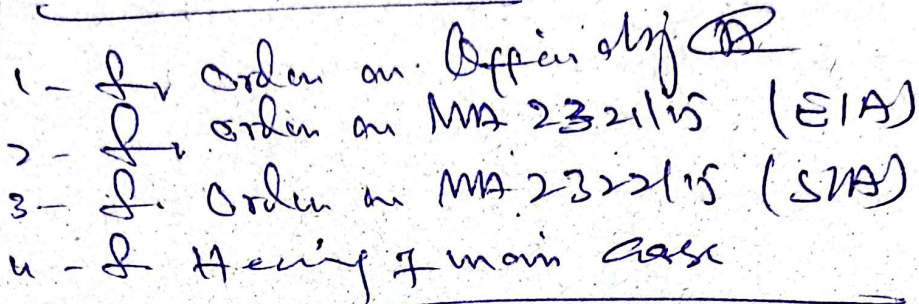 1 - F. order on Office obj (A)
2 - F. order on MA 2321/15 (EIA)
3 - F. Order on MA 2322/15 (S/A)
4 - F. Hearing of main case